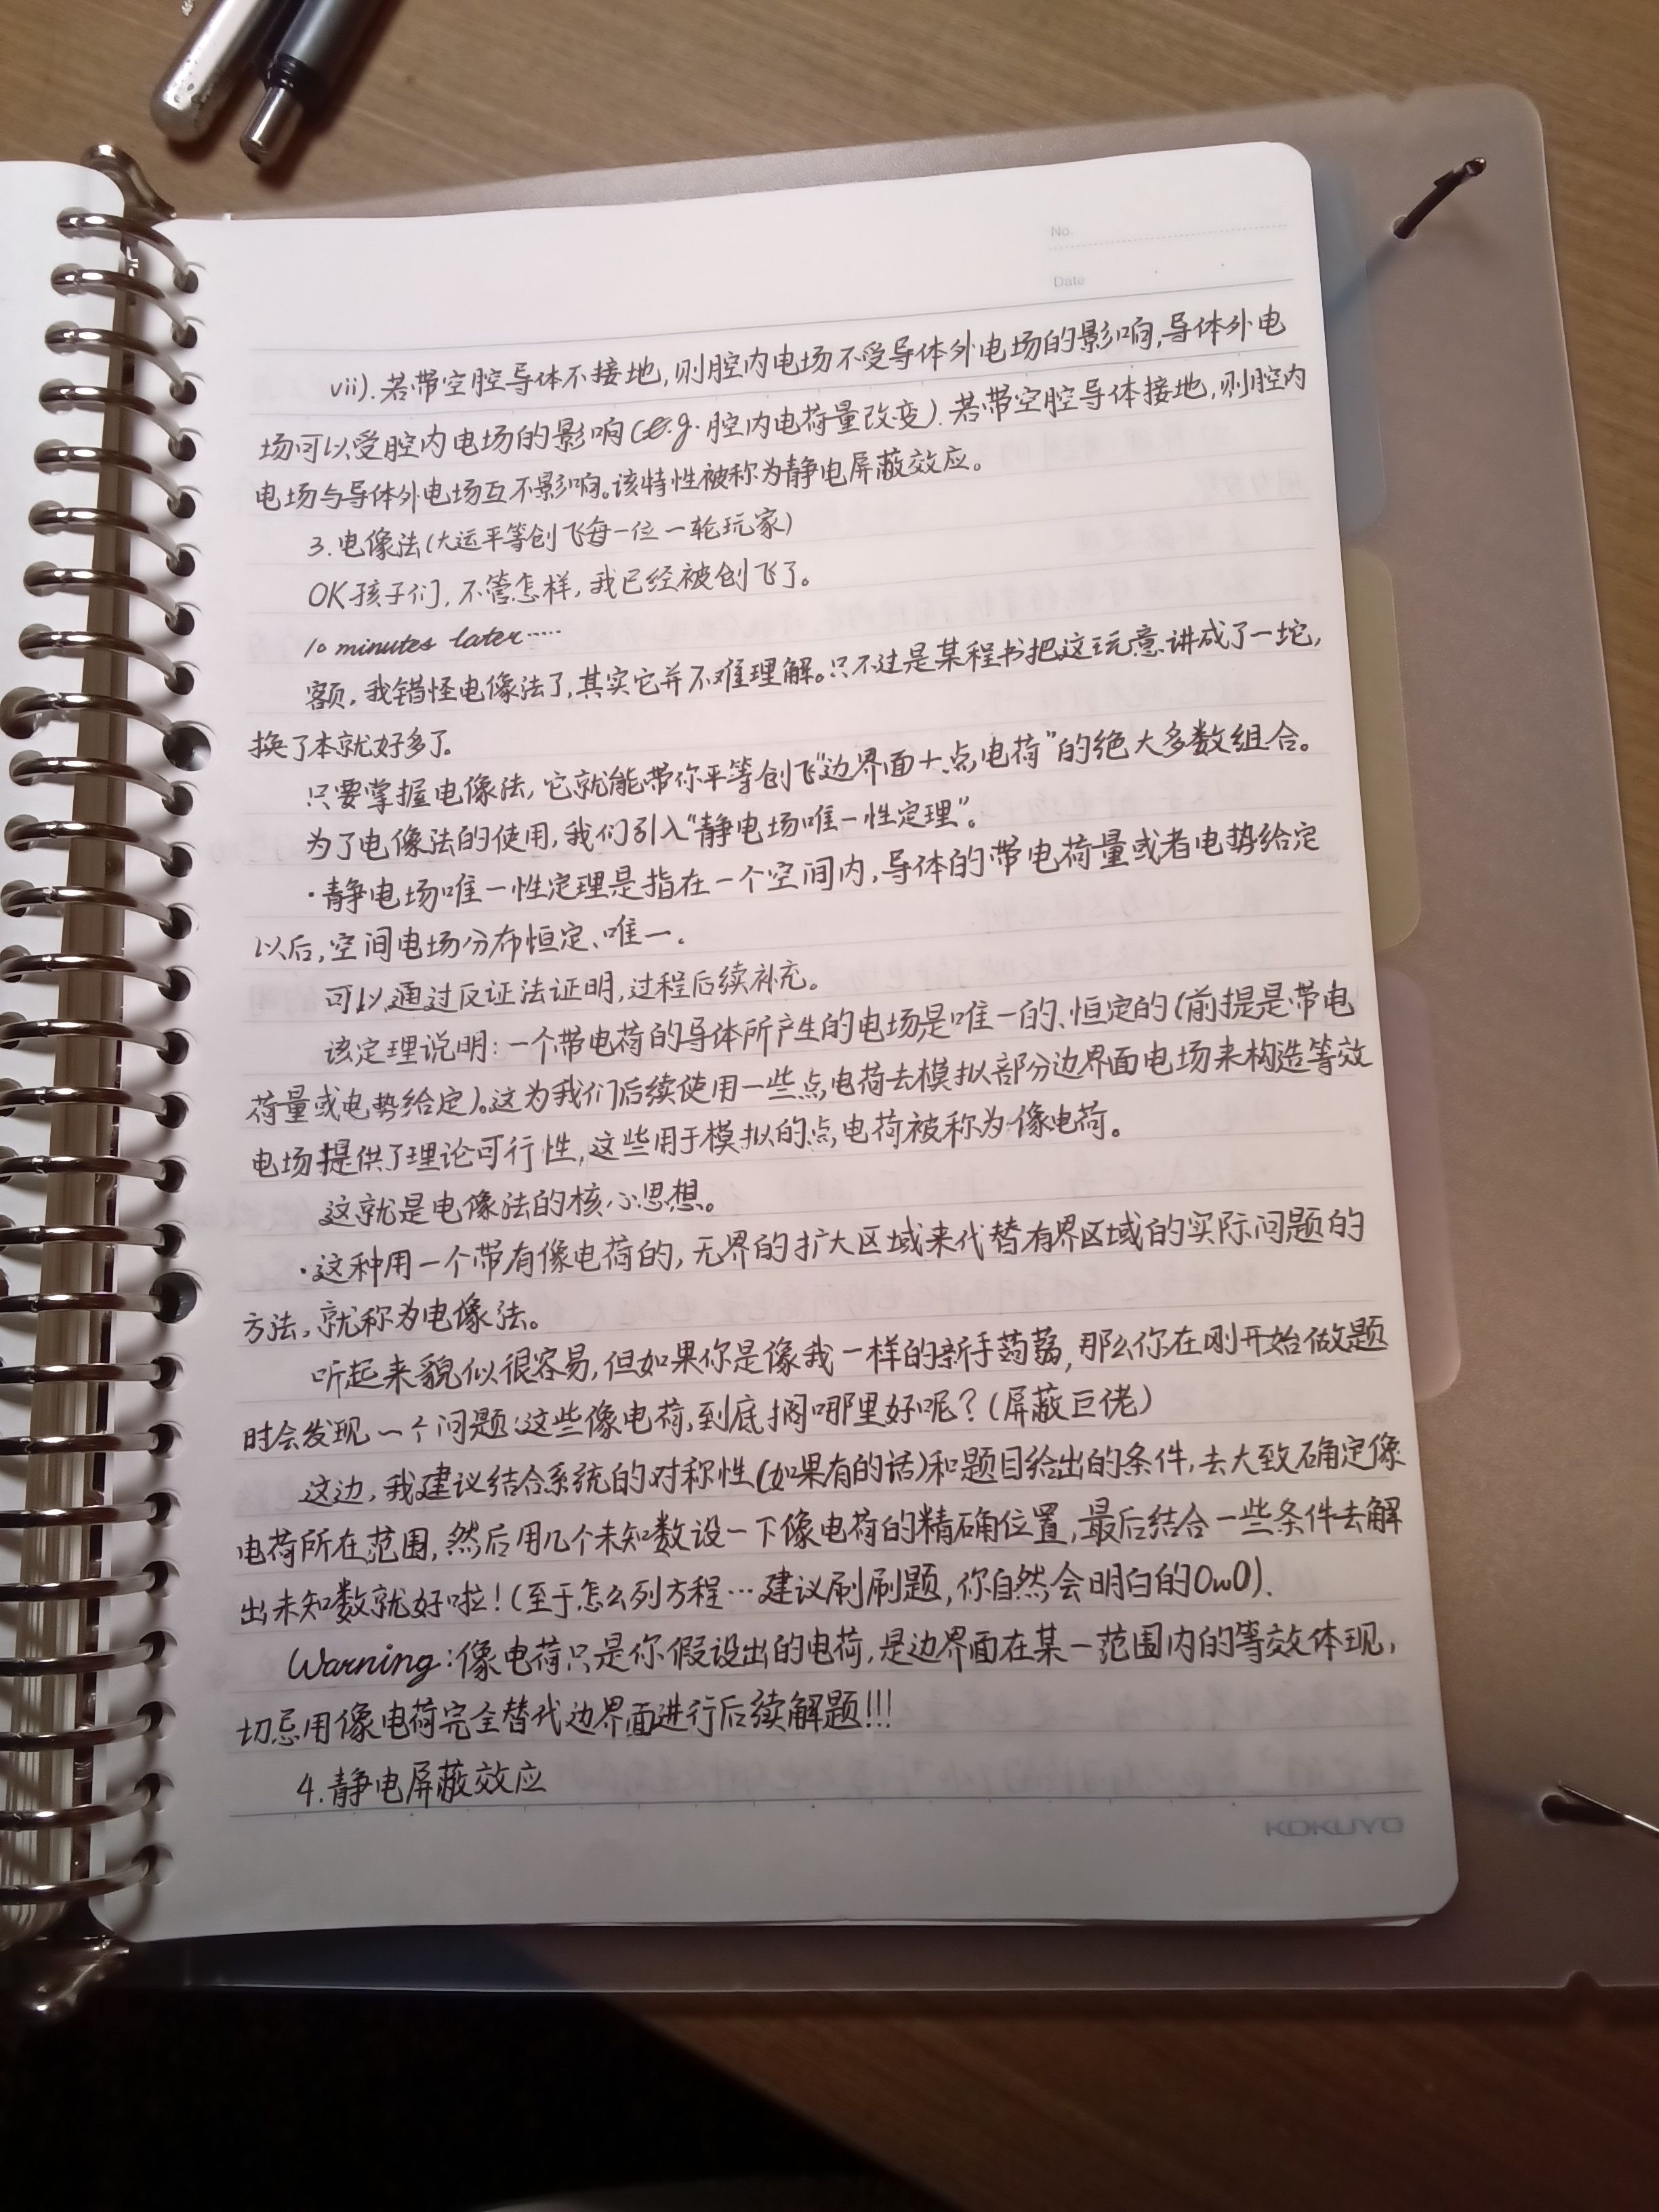 No.
Date
vii).若带空腔导体不接地,则腔内电场不受导体外电场的影响,导体外电
场可以受腔内电场的影响(e.g.腔内电荷量改变).若带空腔导体接地,则腔内
电场与导体外电场互不影响。该特性被称为静电屏蔽效应。
3.电像法(大运平等创飞每一位一轮玩家)
OK孩子们,不管怎样,我已经被创飞了。
10 minutes later……
客页,我错怪电像法了,其实它并不难理解。只不过是某程书把这玩意讲成了一坨,
换了本就好多了。
只要掌握电像法,它就能带你平等创飞“边界面+点电荷”的绝大多数组合。
为了电像法的使用,我们引入“静电场唯一性定理”。
·静电场唯一性定理是指在一个空间内,导体的带电荷量或者电势给定
以后,空间电场分布恒定、唯一。
可以通过反证法证明,过程后续补充。
该定理说明:一个带电荷的导体所产生的电场是唯一的、恒定的(前提是带电
荷量或电势给定)。这为我们后续使用一些点电荷去模拟部分边界面电场来构造等效
电场提供了理论可行性,这些用于模拟的点电荷被称为像电荷。
这就是电像法的核心思想。
·这种用一个带有像电荷的,无界的扩大区域来代替有界区域的实际问题的
方法,就称为电像法。
听起来貌似很容易,但如果你是像我一样的新手蒟蒻,那么你在刚开始做题
时会发现一个问题:这些像电荷,到底搁哪里好呢?(屏蔽巨佬)
这边,我建议结合系统的对称性(如果有的话)和题目给出的条件,去大致确定像
电荷所在范围,然后用几个未知数设一下像电荷的精确位置,最后结合一些条件去解
出未知数就好啦!(至于怎么列方程…建议刷刷题,你自然会明白的OwO).
Warning:像电荷只是你假设出的电荷,是边界面在某一范围内的等效体现,
切忌用像电荷完全替代边界面进行后续解题!!!
4.静电屏蔽效应
KOKUYO